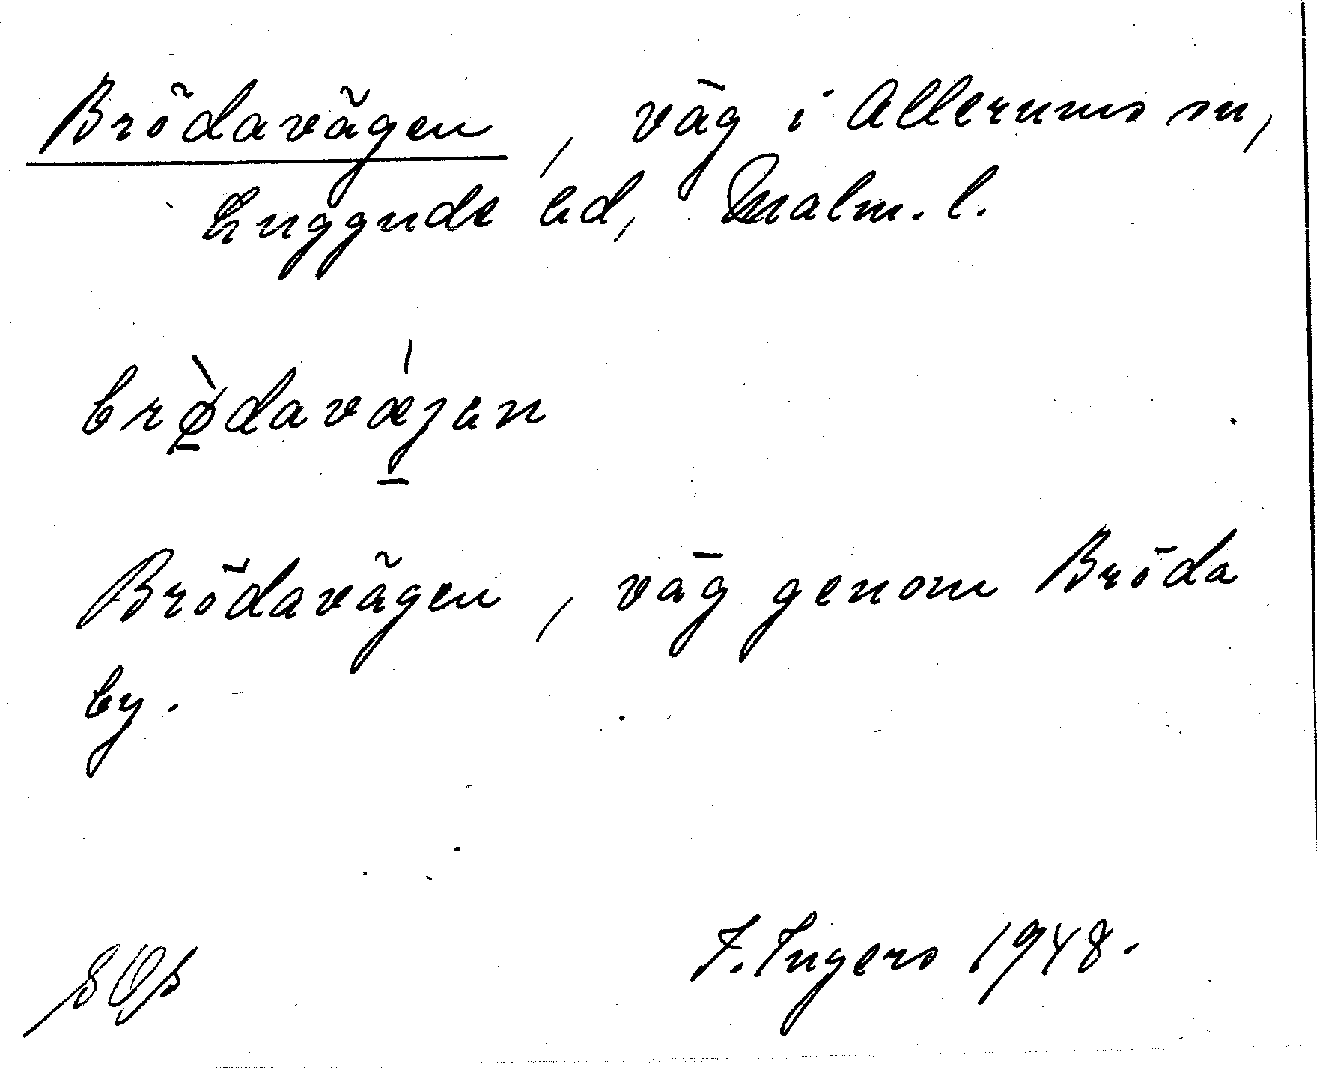 Brödavägen, väg i Allerums sn,
Luggude hd, Malm. l.
brø̱̀davǽ̱jen
Brödavägen, väg genom Bröda
by.
I. Ingers 1948.